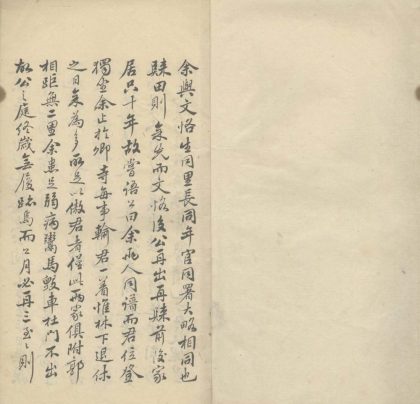 余與文恪生同里長同年官同署大略相同也
歸田則余先而文恪後公再出再歸前後家
居只十年故嘗語公曰余兩人同譜而君位登
獨坐余止於卿寺每事輸君一着惟林下退休
之日余為多所足以傲君者僅此兩家俱附郭
相距無二里余患足弱病鬻馬毀車杜門不出
故公之庭終歲無履跡焉而公月必再三至至則